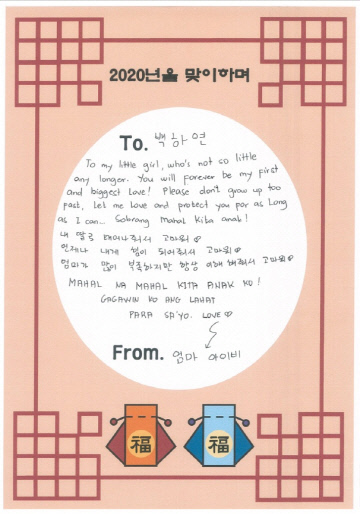 2020년을 맞이하며
To. 백하연
To my little girl, who's not so little
any longer. You will forever be my first
and biggest Love! Please don't grow up too
fast, let me love and protect you for as Long
as I can... Sobrang Mahal Kita anak!
내 딸로 태어나줘서 고마워♡
언제나 내게 힘이 되어줘서 고마워♡
엄마가 많이 부족하지만 항상 이해해줘서 고마워♡
MAHAL NA MAHAL KITA ANAK KO!
GAGAWIN KO ANG LAHAT
PARA SA'YO. LOVE♡
From. 엄마 아이비
福 福